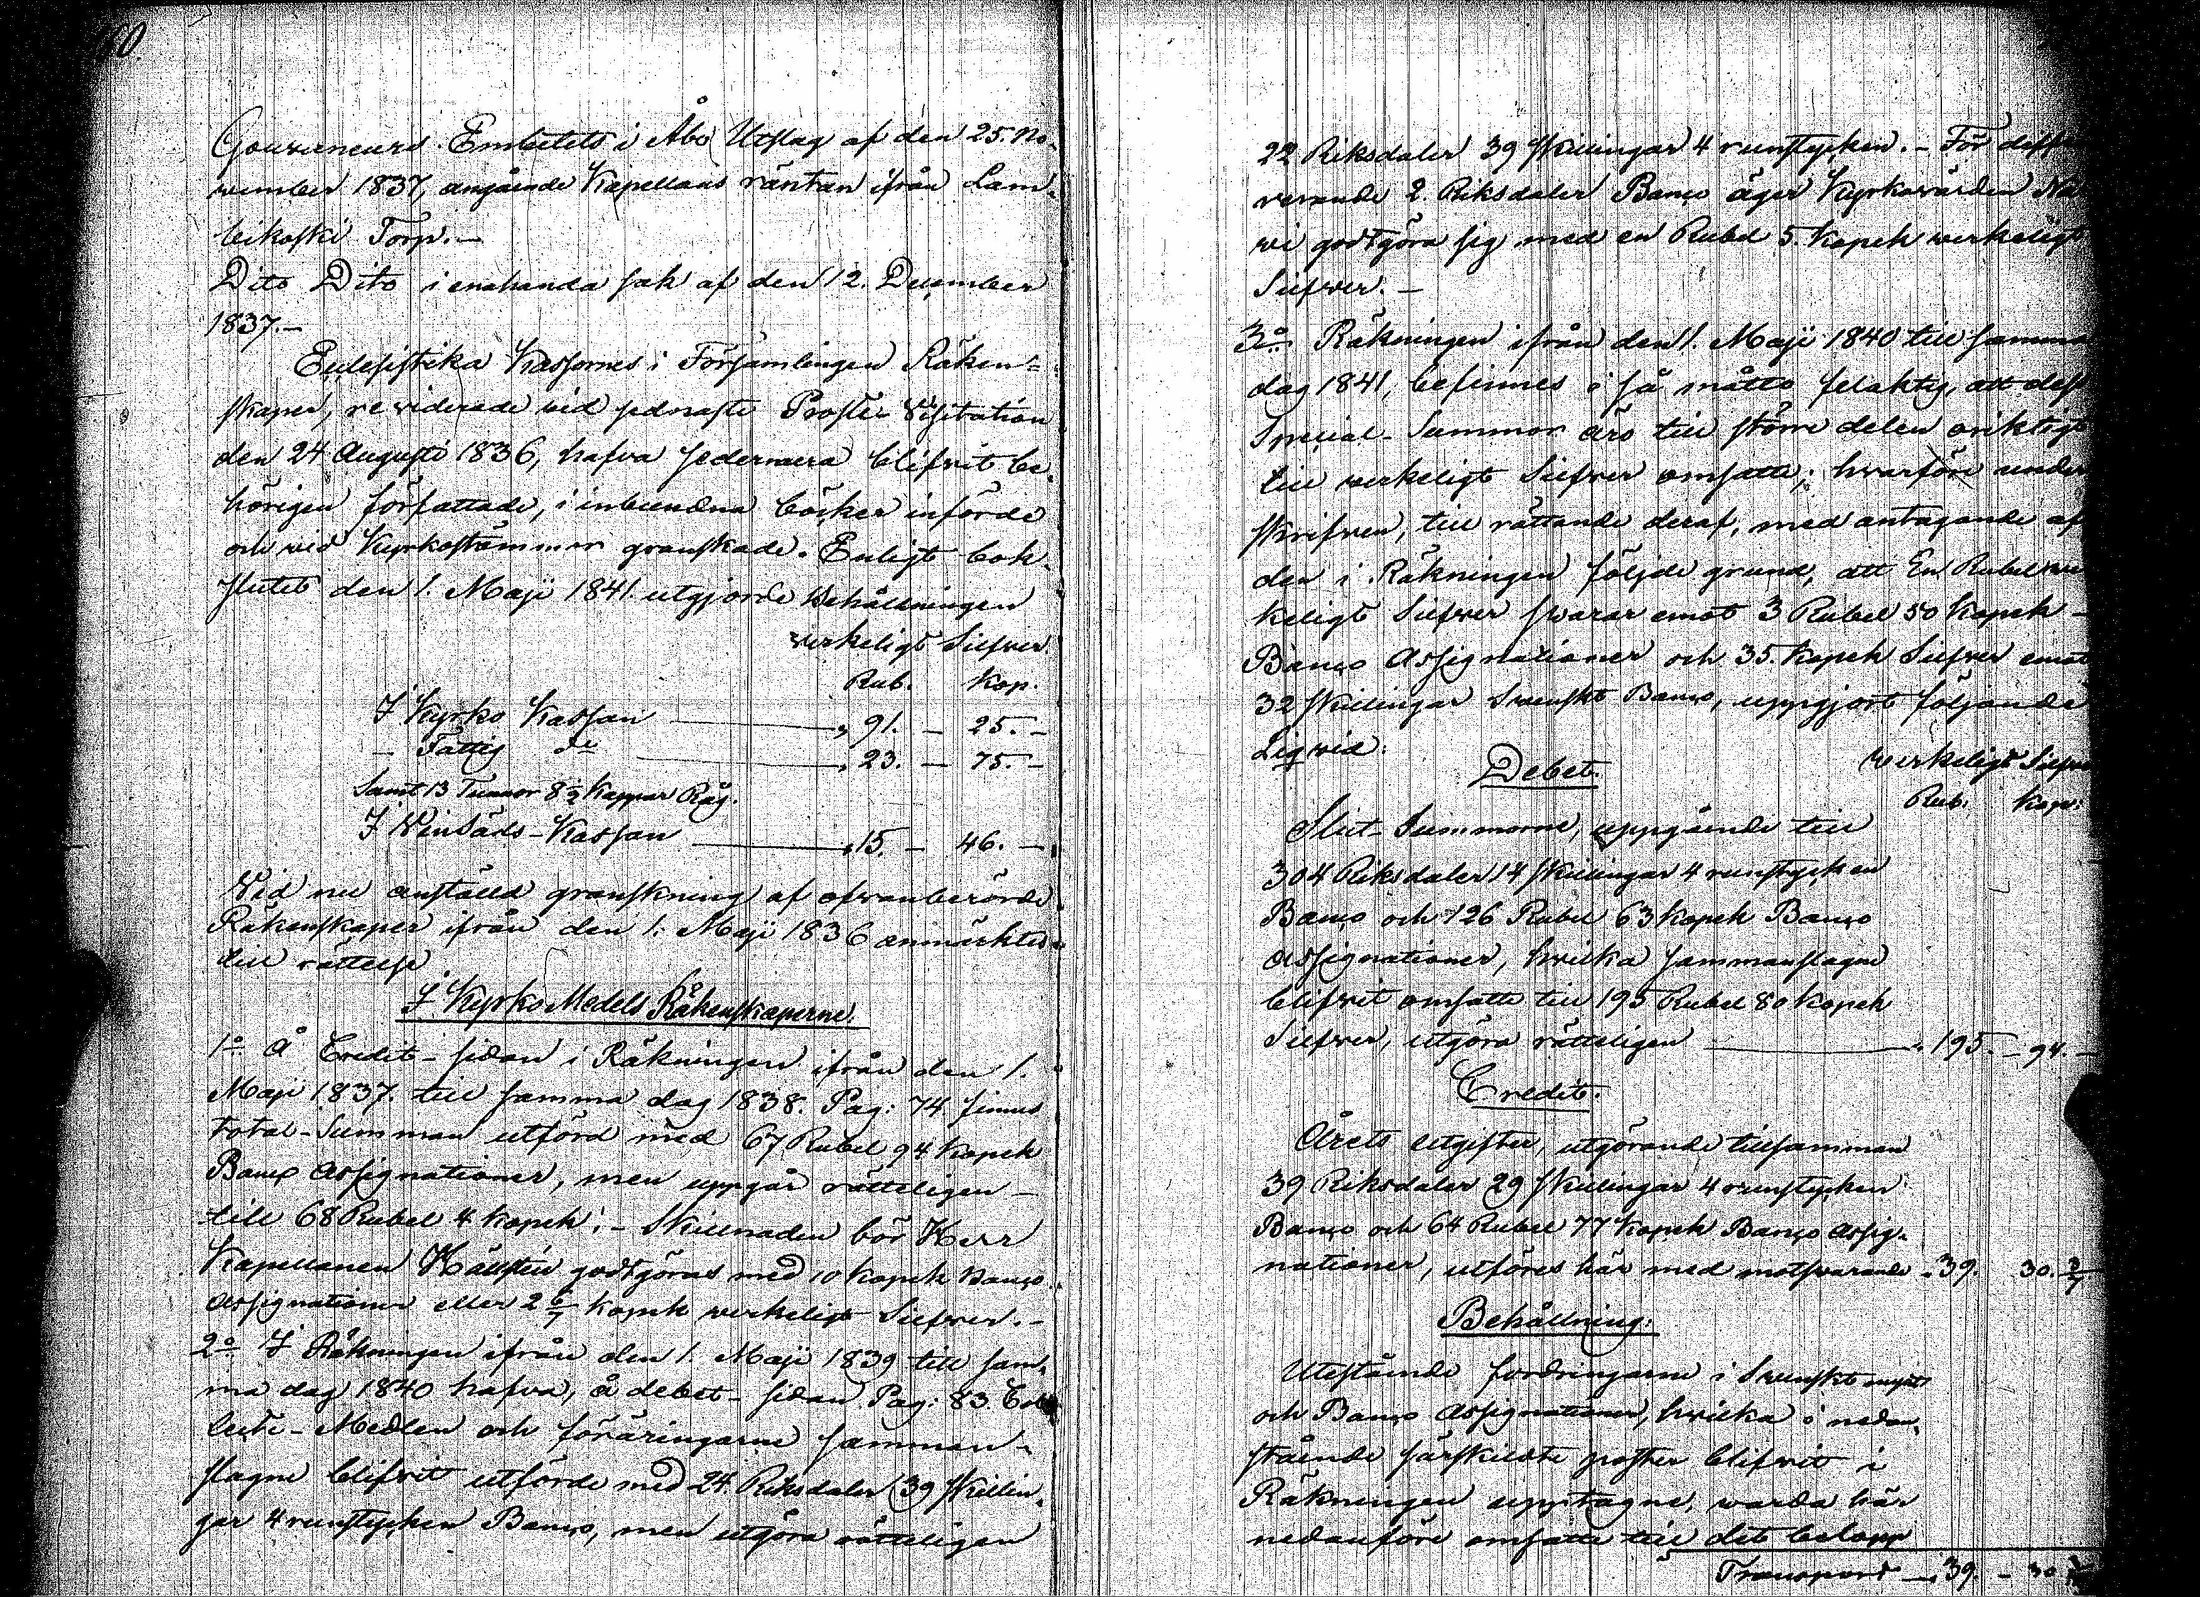 60.
Gouverneurs Embetets i Åbo Utslag af den 25. No-
vember 1837, angående Kapellans räntan ifrån Lam-
bikoski Torp.—
Dito Dito i enahanda sak af den 12. December
1837.—
Eclesistika Kassornes i Församlingen Räken=
skaper, reviderade vid sednaste Prosts Visitation
den 24 Augusti 1836, hafva sedermera blifvit be-
hörigen författade, i inbundna böcker införde
och vid Kyrkostämmor granskade. Enligt bok-
slutet den 1. Maji 1841. utgjorde Behållningen
verkeligt Silfver
Rub. Kop.
I Kyrko Kassan — „ 91. — 25. —
— Fattig d:o — „ 23. — 75. —
Samt 13 Tunnor 8 1/2 Kappar Råg.
I Vinsäds-Kassan — „ 15. — 46. —
Vid nu anstäld granskning af ofvanberörde
Räkenskaper ifrån den 1. Maji 1836 anmärktes
till rättelse
I Kyrko Medels Räkenskaperne.
1:o Å Credit-sidan i Räkningen ifrån den 1.
Maji 1837. till samma dag 1838. Pag: 74 finnes
total-Summan utförd med 67 Rubel 94 Kopek
Banco Assignationer, men uppgår rätteligen —
till 68 Rubel 4 Kopek: — Skillnaden bör Herr
Kapellanen Hällsten godtgöras med 10 Kopek Banco
Assignationer eller 2 6/7 Kopek verkeligt Silfver. —
2:o I Räkningen ifrån den 1. Maji 1839 till sam-
ma dag 1840 hafva, å debet-sidan Pag: 83 Col-
lect-Medlen och föräringarne samman-
slagne blifvit utförde med 24 Riksdaler 39 Skillin-
gar 4 runstycken Banco, men utgöra rätteligen
22 Riksdaler 39 Skillingar 4 runstycken. — För diffe
rerande 2. Riksdaler Banco äger Kyrkovärden
vi godtgöra sig med en Rubel 5. Kopek verkeligt
Silfver. —
3:o Räkningen ifrån den 1. Maji 1840 till samma
dag 1841, befinnes i så måtto felaktig, att dess
Special-Summor äro till större delen oriktigt
till verkeligt Silfver omsatte; hvarföre under
skrifven, till rättande deraf, med antagande af
den i Räkningen följde grund, att En Rubel ver
keligt Silfver svarar emot 3 Rubel 50 Kopek —
Banco Assignationer och 35. Kopek Silfver emot
32 Skillingar Svenskt Banco, uppgjort följande
Liqvid:
Debet.
verkeligt Silfver
Rub. Kop:
Slut-Summorne, uppgående till
304 Riksdaler 14 Skillingar 4 runstycken
Banco och 126 Rubel 63 Kopek Banco
Assignationer, hvilka sammanslagne
blifvit omsatte till 195 Rubel 80 Kopek
Silfver, utgöra rätteligen — „ 195. — 94. —
Credit.
Årets utgifter, utgörande tillsamman
39 Riksdaler 29 Skillingar 4 runstycken
Banco och 64 Rubel 77 Kopek Banco Assig-
nationer, utföres här med motsvarande „ 39. 30. 2/7
Behållning:
Utestående fordringarne i Svenskt mynt
och Banco Assignationer, hvilka i nedan-
stående särskildte poster blifvit i
Räkningen upptagne, warda här
nedanföre omsatte till det belopp
Transport — „ 39. — 30